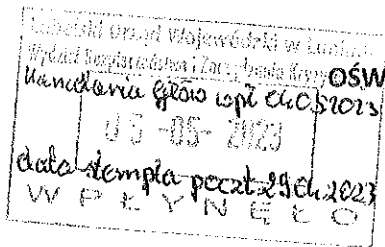 Lubelski Urząd Wojewódzki w Lublinie
Wydział Bezpieczeństwa i Zarządzania Kryzysowego
OŚW
Kancelaria Główna wpł. 04.05.2023
05 -05- 2023
data stempla poczt. 29.04.2023
WPŁYNĘŁO